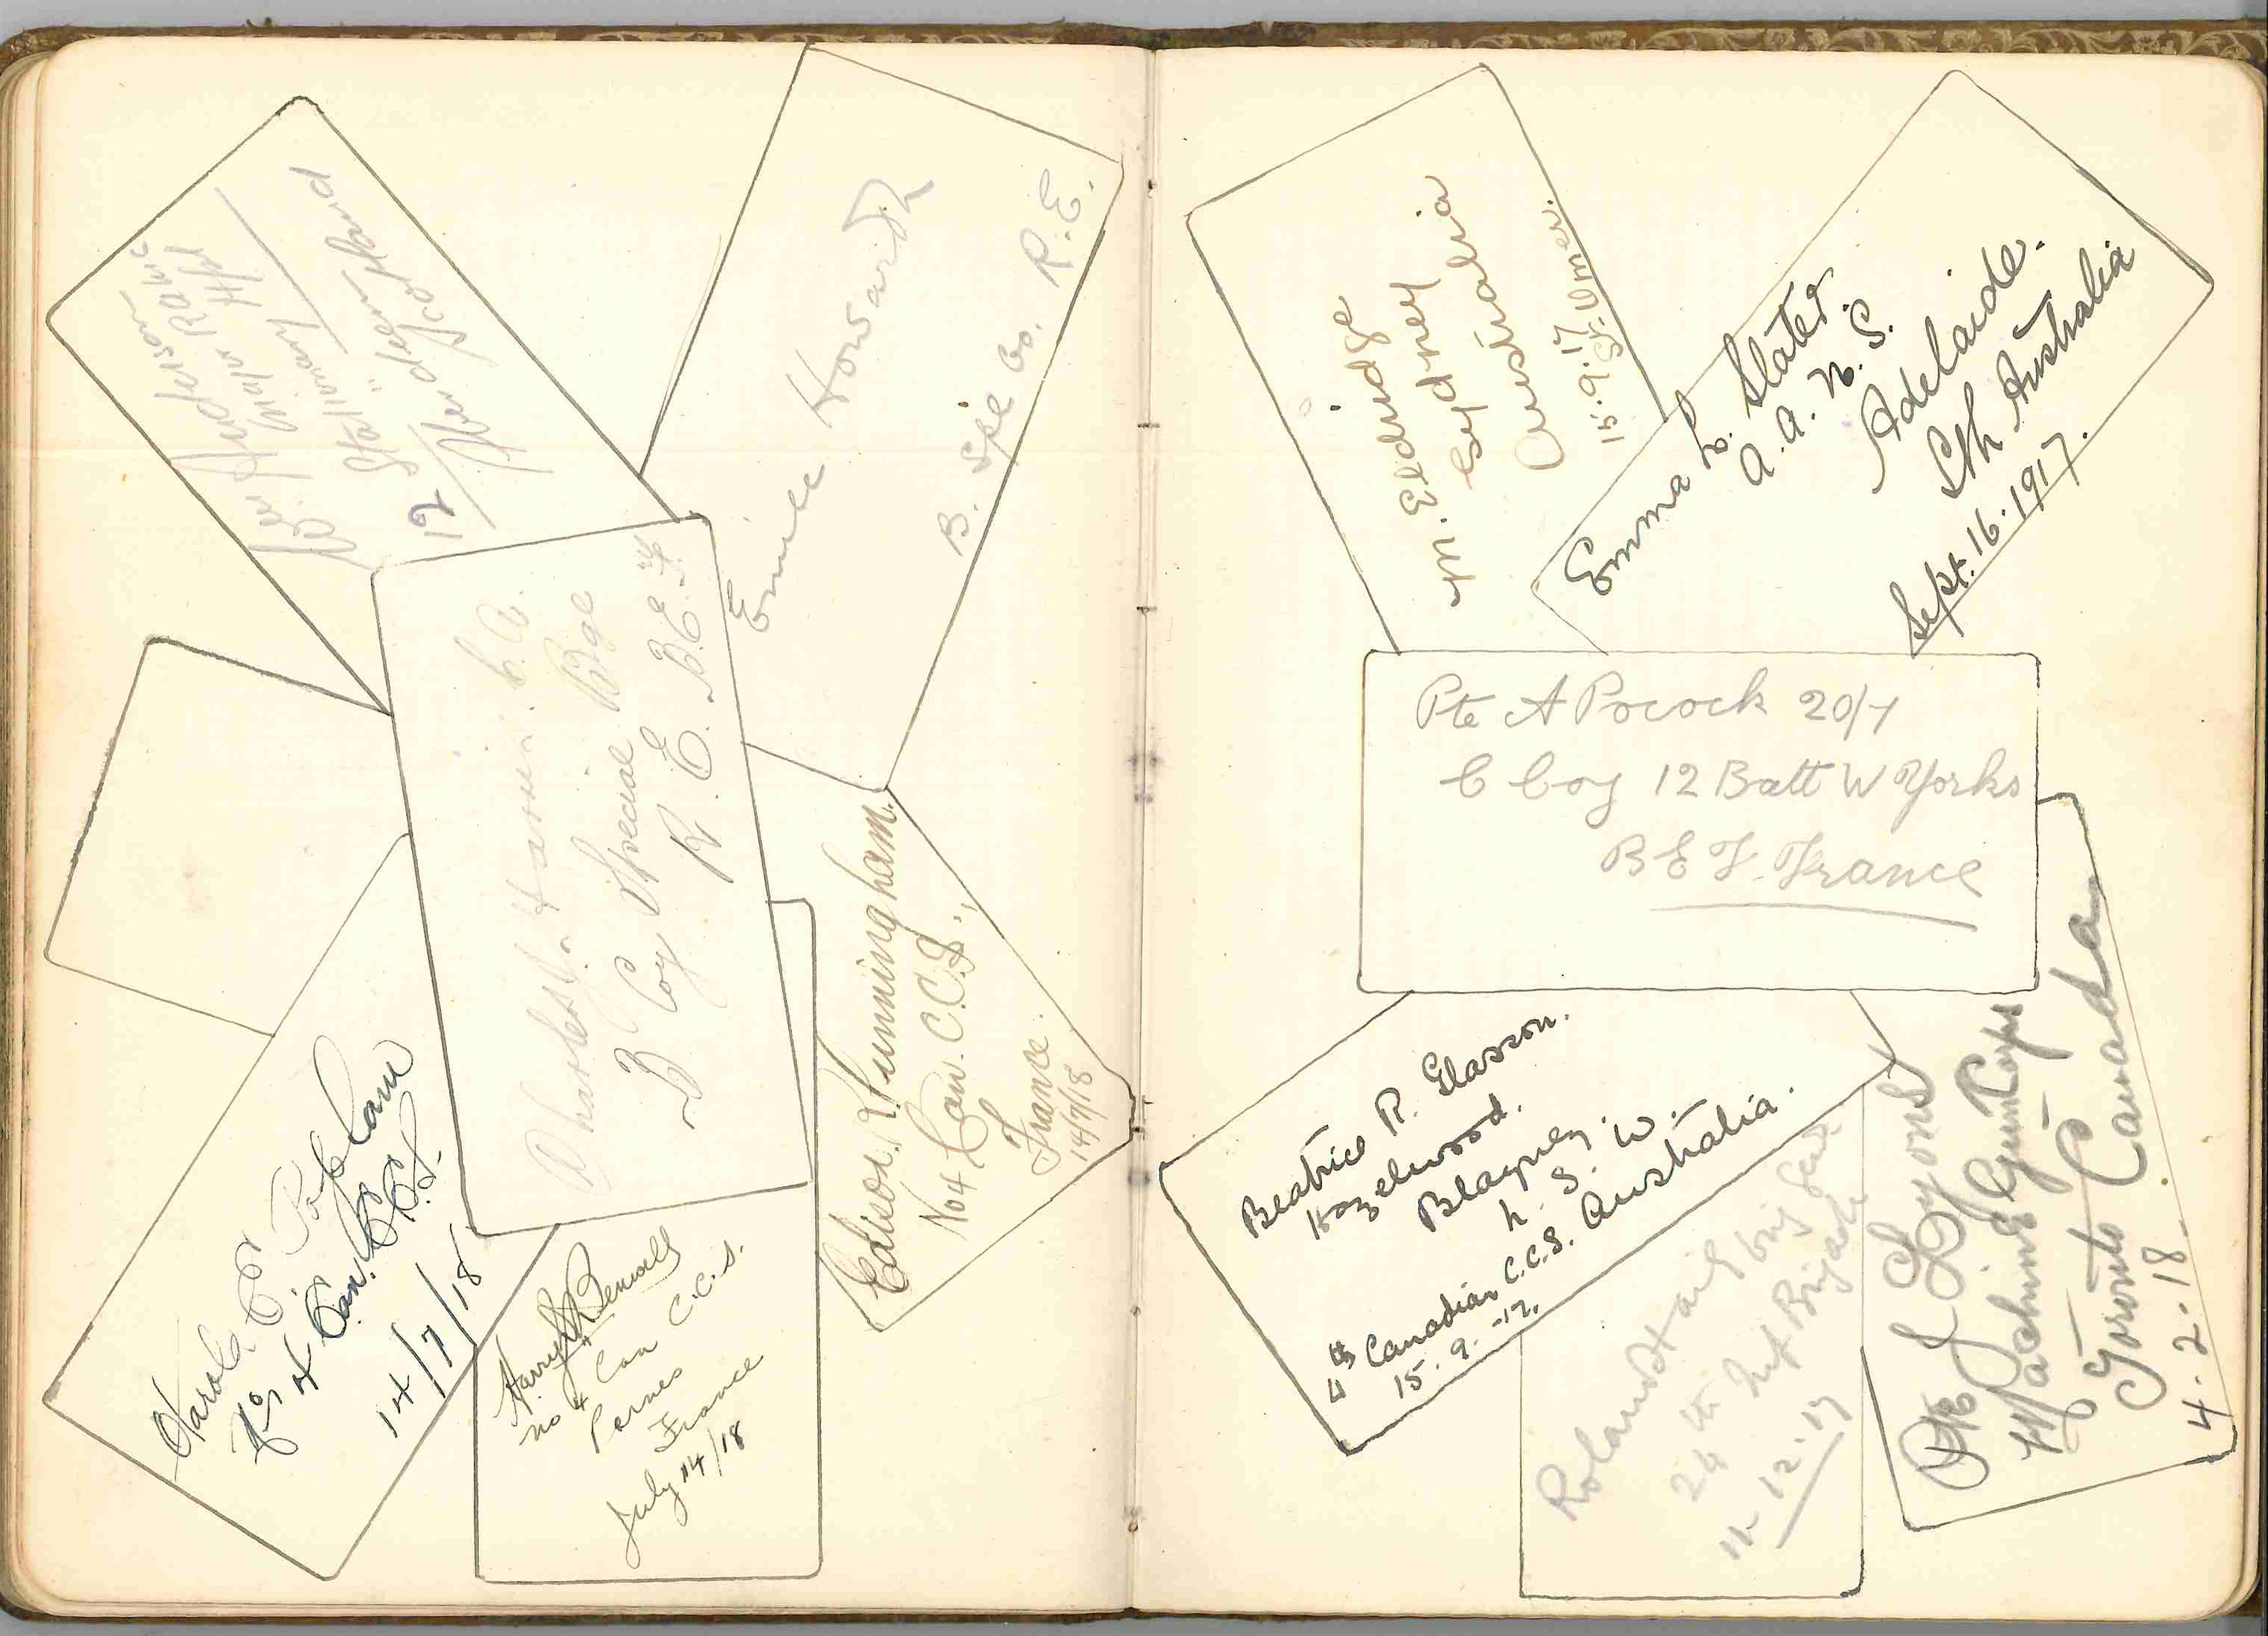 Wm. Henderson
Major RAMC
12 Stationary Hpl
Aberdeen Scotland
Emile Howarth
B. Spec Co. R.E.
Charles J.
B Coy Special Bge
R. E. B.E.F.
Harold
No 4 Can. C.C.S.
14/7/18
Harry
No 4 Can C.C.S.
Pernes
France
July 14/18
Edison R. Cunningham.
No 4 Can. C.C.S.,
France.
14/7/18
M. Eldridge
Sydney
Australia
15.9.17
St. Omer.
Emma L. Slater
A. A. N. S.
Adelaide.
Sth Australia
Sept. 16. 1917.
Pte A Pocock 20/7
C Coy 12 Batt W Yorks
B E F. France
Beatrice R. Glasson.
Hazelwood.
Blayney.
N. S. W.
4th Canadian C.C.S. Australia.
15. 9. -17.
Roland
24th Inf Brigade
11-12-17
Pte J Lyons
Machine Gun Corps
Toronto Canada
4-2-18